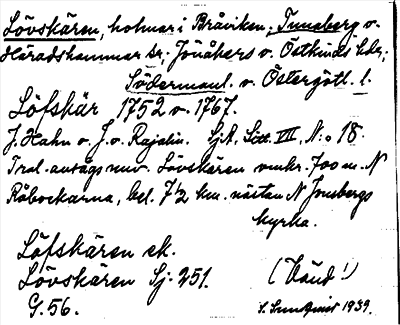 Lövskären, holmar i Bråviken, Tunaberg o.
Häradshammar sr; Jönåkers o. Östkinds hdr;
Södermanl. o. Östergötl. l.
Löfskär 1752 o. 1767.
J. Hahn o. J. v. Rajalin. SjK, Litt. VII, N:o 18.
Trol. avsågs nuv. Lövskären omkr. 700 m. N
Råbockarna, bel. 7½ km. nästan N Jonsbergs
kyrka.
Löfskären ek.
Lövskären Sj: 251. (Känd!)
G. 56. S. Sundquist 1939.